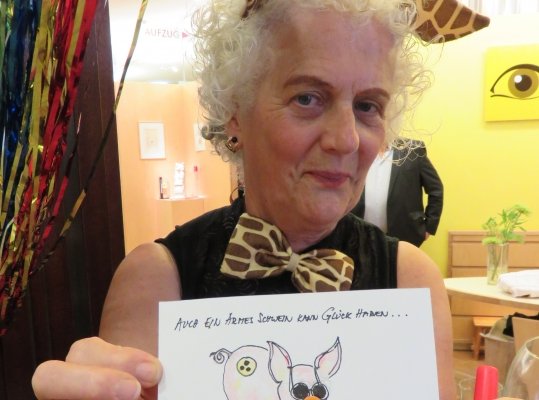 AUFZUG
AUCH EIN ARMES SCHWEIN KANN GLÜCK HABEN...